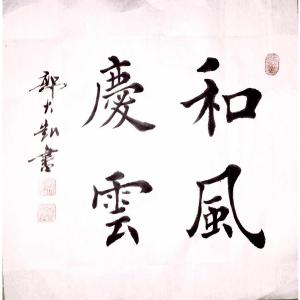 和風
慶雲
鄭大凱書